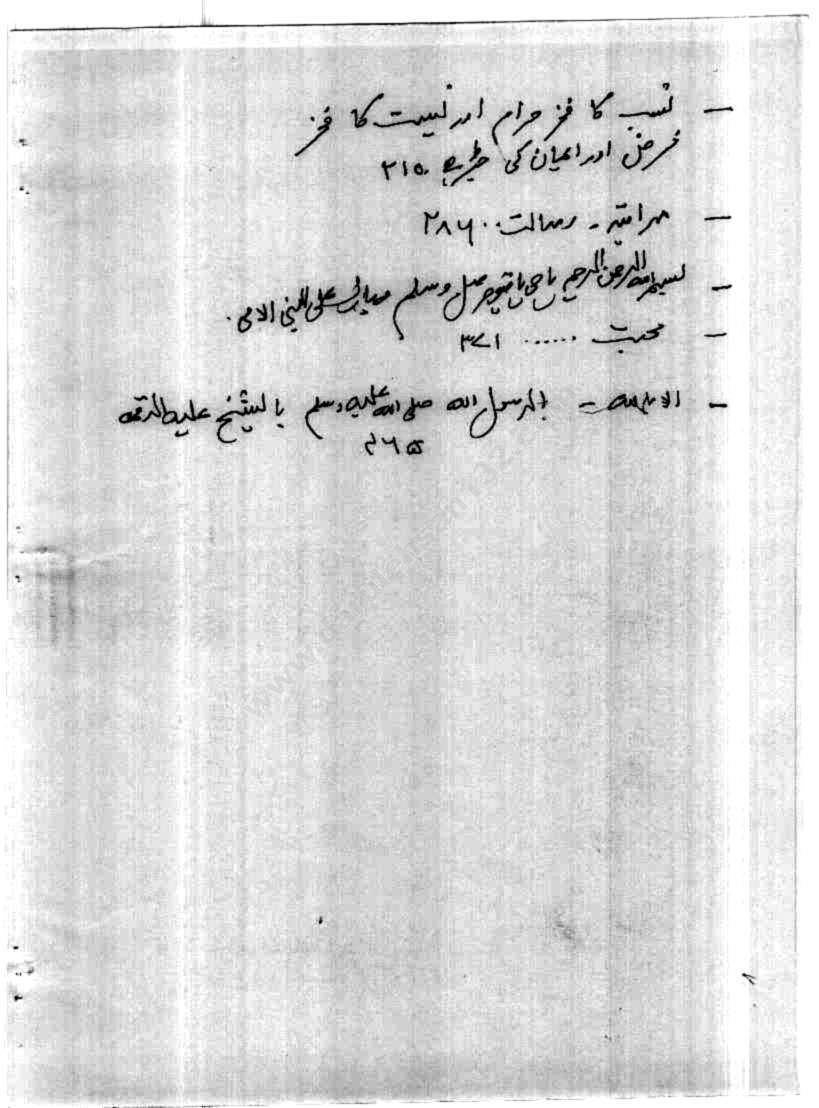 - نسب کا فخر حرام اور نسبت کا فخر
فرض اور ایمان کی جڑ ہے ۳۱۵
- مراقبہ - رسالت .. ۲۸۶
- بسم الله الرحمن الرحیم یا حی یا قیوم صل وسلم وبارک علی النبی الامی .
- محبت ...... ۳۷۱
- - بالرسول الله صلی الله علیه وسلم یا لشیخ علیه الرحمه
۴۶۵